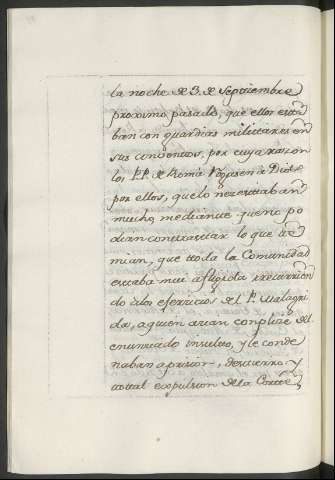 la noche de 3. de Septiembre
proximo pasado, que ellos esta
ban con guardias militares en
sus conventos, por cuya razon
los PP. de Roma Rogasen à Dios
por ellos, que lo necesitaban
mucho, mediante que no po
dian contrastar lo que te
mian, que toda la Comunidad
estaba mui afligida recurrien
do à los del P. Malagri
da, a quien avian complice del
enunciado insulto, y le conde
naban a prision, destierro, y
total expulsion de la Corte